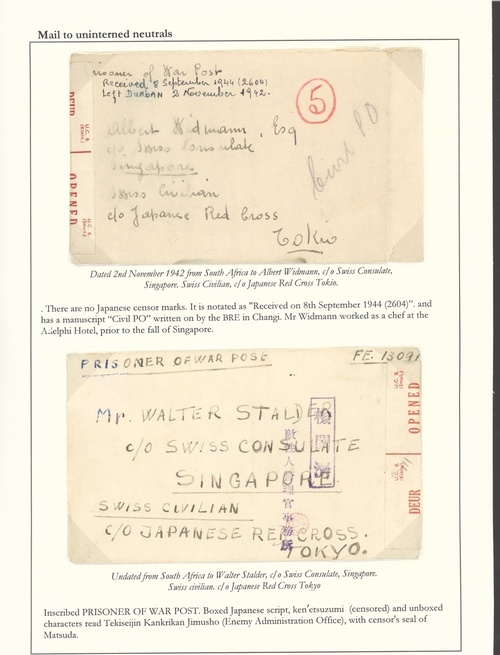 Mail to uninterned neutrals
risoner of War Post
Received 8 September 1944 (2604)
Left DURBAN 2 November 1942.
5
Albert Widmann, Esq
c/o Swiss Consulate
Singapore
Swiss Civilian
c/o Japanese Red Cross
Tokio
Civil PO
DEUR
OPENED
U.C. 2
Dated 2nd November 1942 from South Africa to Albert Widmann, c/o Swiss Consulate,
Singapore. Swiss Civilian, c/o Japanese Red Cross Tokio.
. There are no Japanese censor marks. It is notated as "Received on 8th September 1944 (2604)". and
has a manuscript "Civil PO" written on by the BRE in Changi. Mr Widmann worked as a chef at the
Adelphi Hotel, prior to the fall of Singapore.
PRISONER OF WAR POST
FE. 13091
Mr. WALTER STALDER
c/o SWISS CONSULATE
SINGAPORE
SWISS CIVILIAN
C/O JAPANESE RED CROSS.
TOKYO.
OPENED
DEUR
Undated from South Africa to Walter Stalder, c/o Swiss Consulate, Singapore.
Swiss civilian. c/o Japanese Red Cross Tokyo
Inscribed PRISONER OF WAR POST. Boxed Japanese script, ken'etsuzumi (censored) and unboxed
characters read Tekiseijin Kankrikan Jimusho (Enemy Administration Office), with censor's seal of
Matsuda.